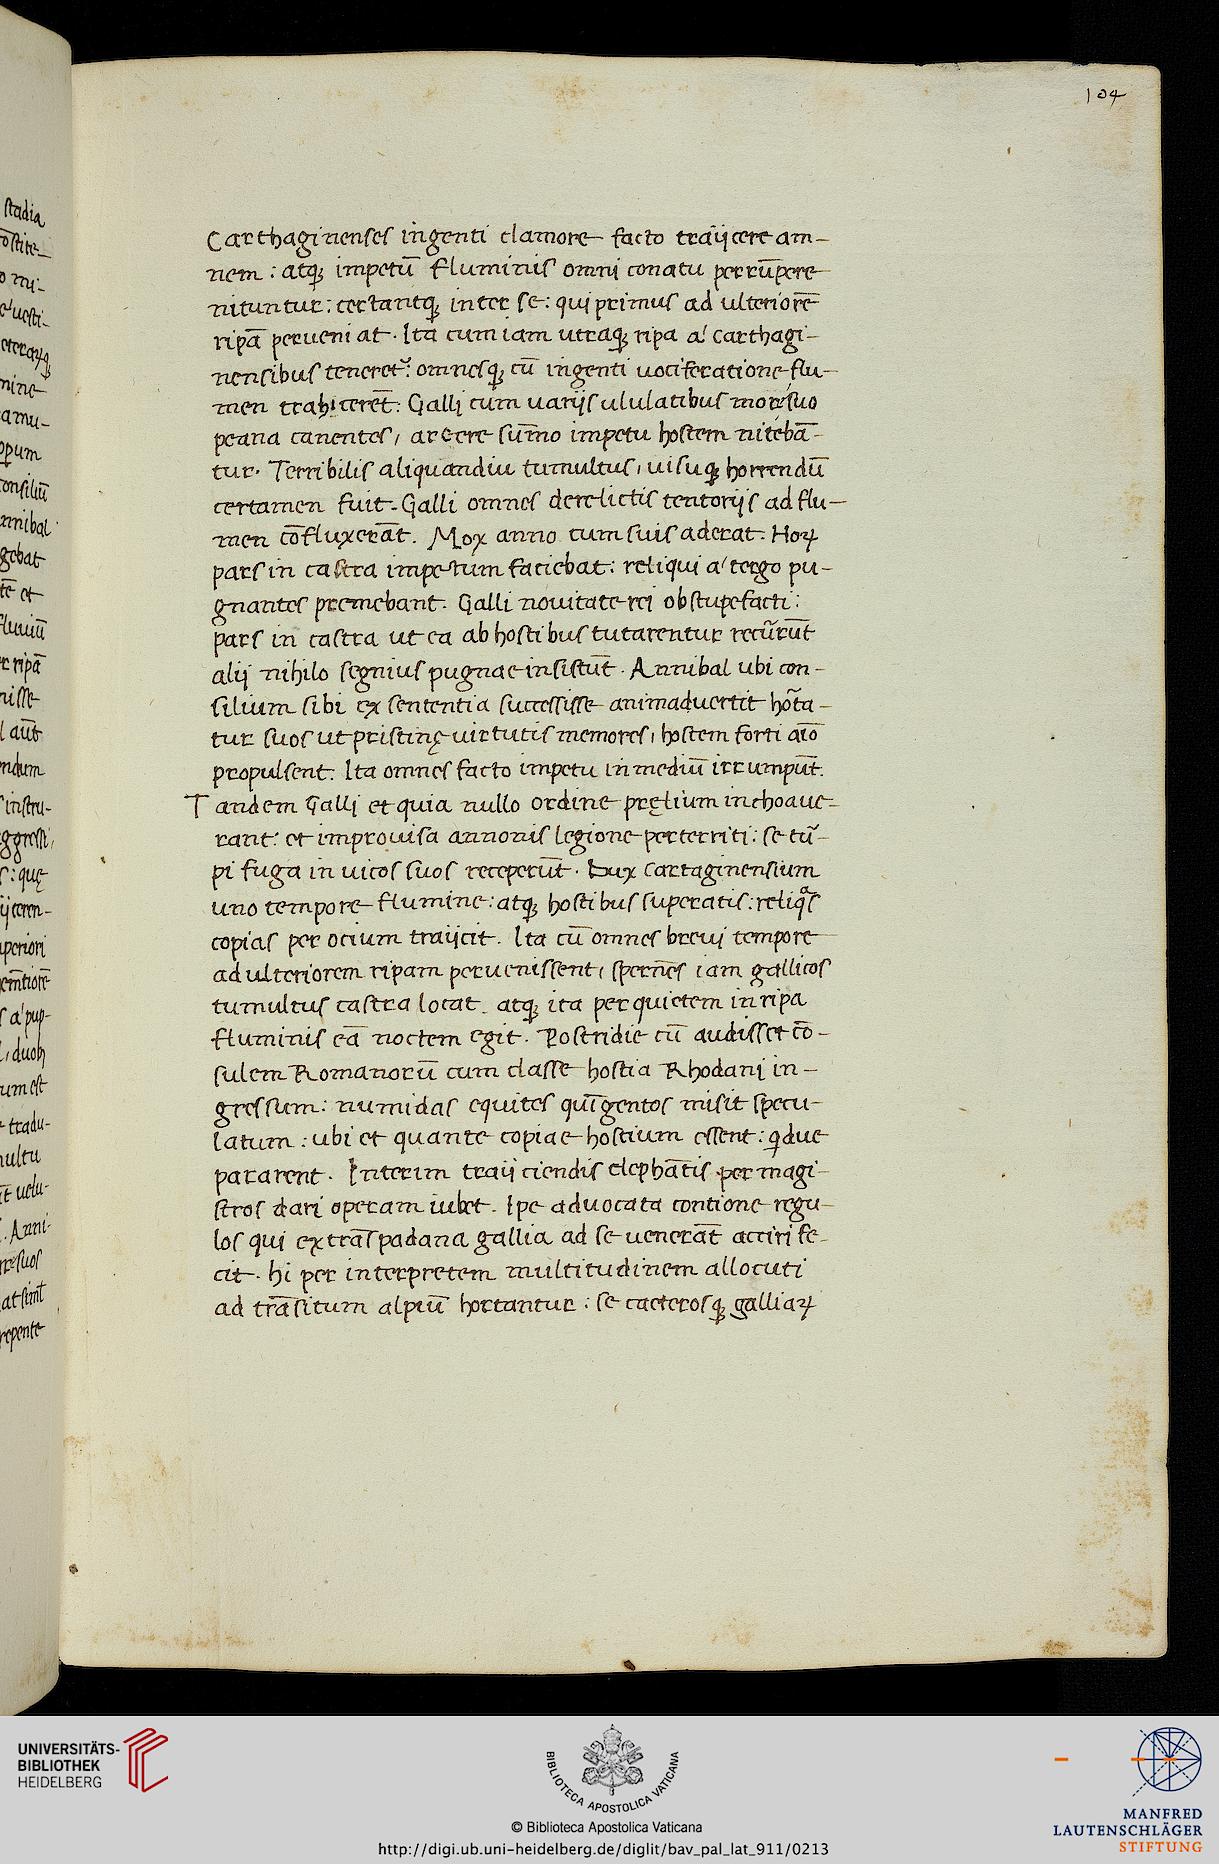 104
Carthaginenses ingenti clamore facto traijcere am-
nem : atq; impetū fluminis omni conatu perrūpere
nituntur: certantq; inter se: qui primus ad ulteriorē
ripā perueniat. Ita cum iam utraq; ripa a' carthagi-
nensibus teneret᷑: omnesq; cū ingenti uociferatione flu-
men trahicerēt: Galli cum uarijs ululatibus more suo
peana canentes, arcere sūmo impetu hostem nitebā-
tur. Terribilis aliquandiu tumultus, uisuq; horrendū
certamen fuit. Galli omnes derelictis tentorijs ad flu-
men cōfluxerāt. Mox anno cum suis aderat. Hoꝝ
pars in castra impetum faciebat: reliqui a' tergo pu-
gnantes premebant. Galli nouitate rei obstupefacti:
pars in castra ut ea ab hostibus tutarentur recur̃rūt
alij nihilo segnius pugnae insistūt. Annibal ubi con-
silium sibi ex sententia successisse animaduertit hor̃ta-
tur suos ut pristinę uirtutis memores, hostem forti aīo
propulsent. Ita omnes facto impetu in mediū irrumpūt.
Tandem Galli et quia nullo ordine pręlium inchoaue-
rant: et improuisa annonis legione perterriti: se tur̃-
pi fuga in uicos suos receperūt. Dux cartaginensium
uno tempore flumine: atq; hostibus superatis: reliqᵃs
copias per ocium traijcit. Ita cū omnes breui tempore
ad ulteriorem ripam peruenissent, spernēs iam gallicos
tumultus castra locat. atq; ita per quietem in ripa
fluminis eā noctem egit. Postridie cū audisset cō-
sulem Romanorū cum classe hostia Rhodani in-
gressum: numidas equites quīgentos misit specu-
latum : ubi et quante copiae hostium essent: qdue
pararent. Interim traijciendis elephātis per magi-
stros dari operam iubet. Ipe aduocata contione regu-
los qui ex trāspadana gallia ad se uenerāt acciri fe-
cit. hi per interpretem multitudinem allocuti
ad trāsitum alpiū hortantur: se caeterosq; galliaꝝ
UNIVERSITÄTS-
BIBLIOTHEK
HEIDELBERG
BIBLIOTECA APOSTOLICA VATICANA
© Biblioteca Apostolica Vaticana
http://digi.ub.uni-heidelberg.de/diglit/bav_pal_lat_911/0213
MANFRED
LAUTENSCHLÄGER
STIFTUNG